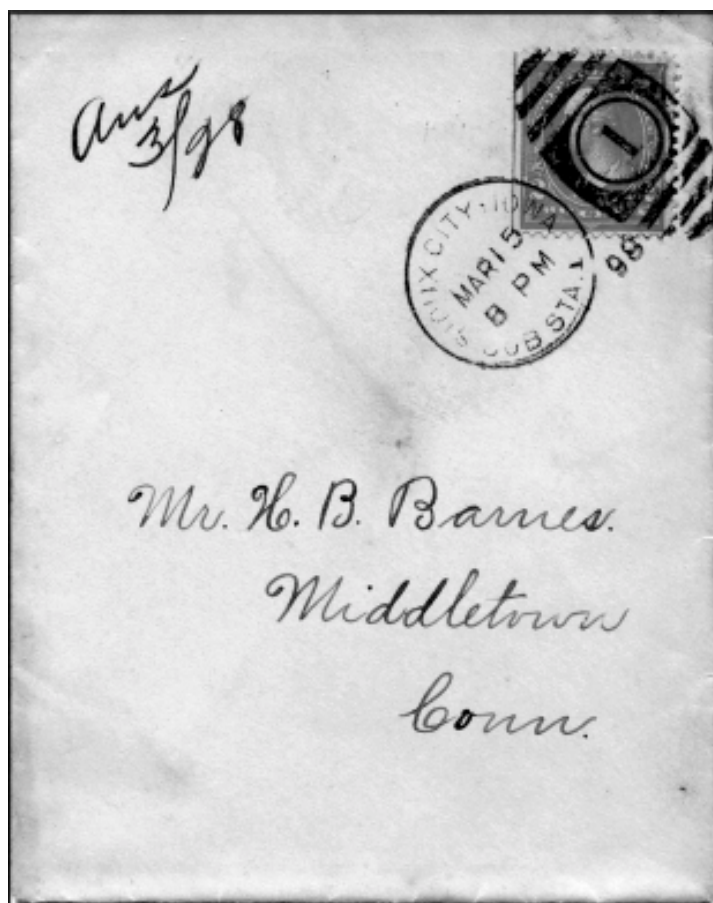 Ans
3/98
SIOUX CITY, IOWA
MAR 15
8 PM
98
SUB STA. 1
1
Mr. H. B. Barnes.
Middletown
Conn.